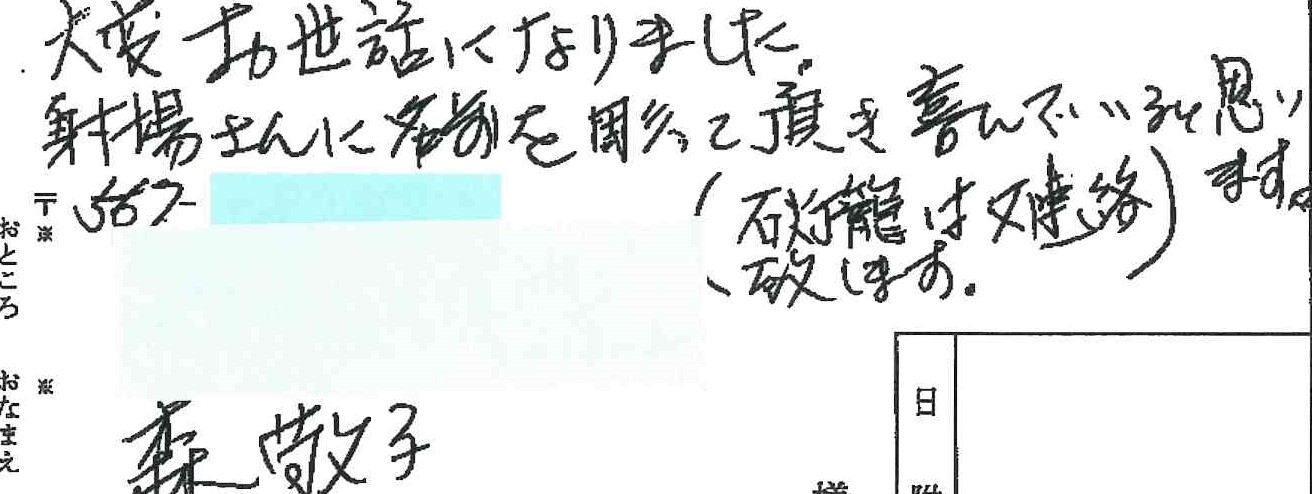 大変お世話になりました。
射場さんに名前を彫って頂き喜んでいると思い
ます。
(石灯籠は又連絡
致します。)
〒567-
※
おところ
※
おなまえ
森敬子
日附
様